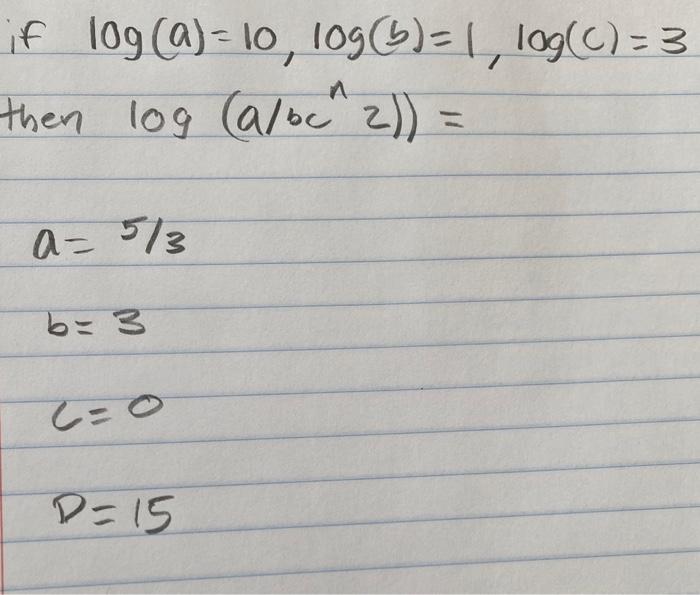 if log(a)=10, log(b)=1, log(c)=3
then log (a/bc^2)) =
a= 5/3
b= 3
c=0
D=15